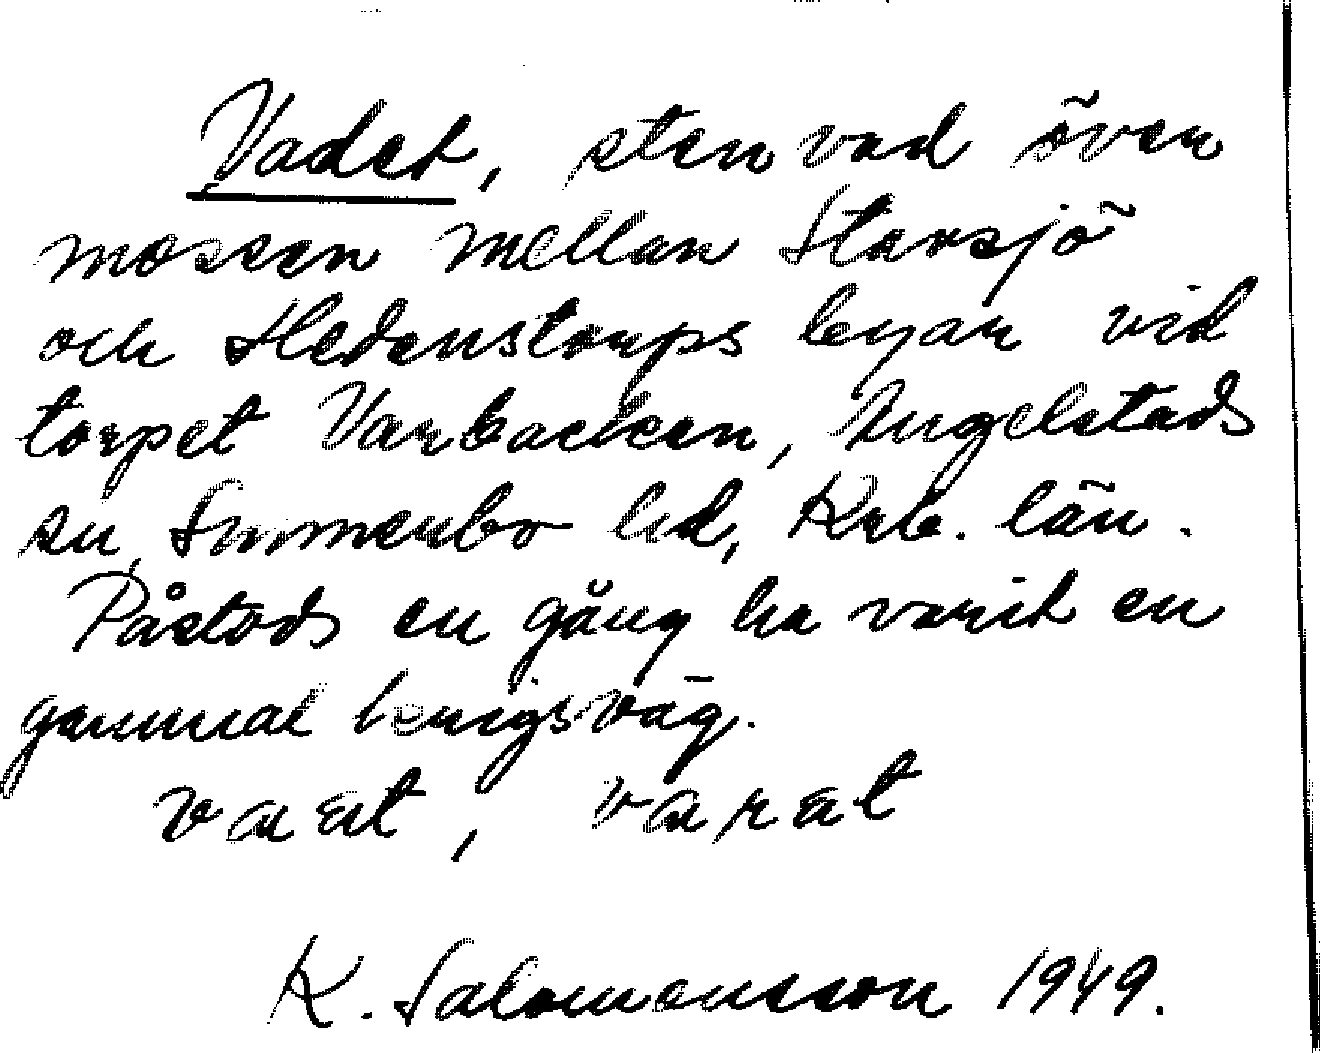 Vadet, sten vad över
mossen mellan Starsjö
och Hedenstorps byar vid
torpet Varbacken, Ingelstads
sn, Sunnerbo hd, Krb. län.
Påstods en gång ha varit en
gammal krigsväg.
vaat, varat
K. Salomonsson 1949.